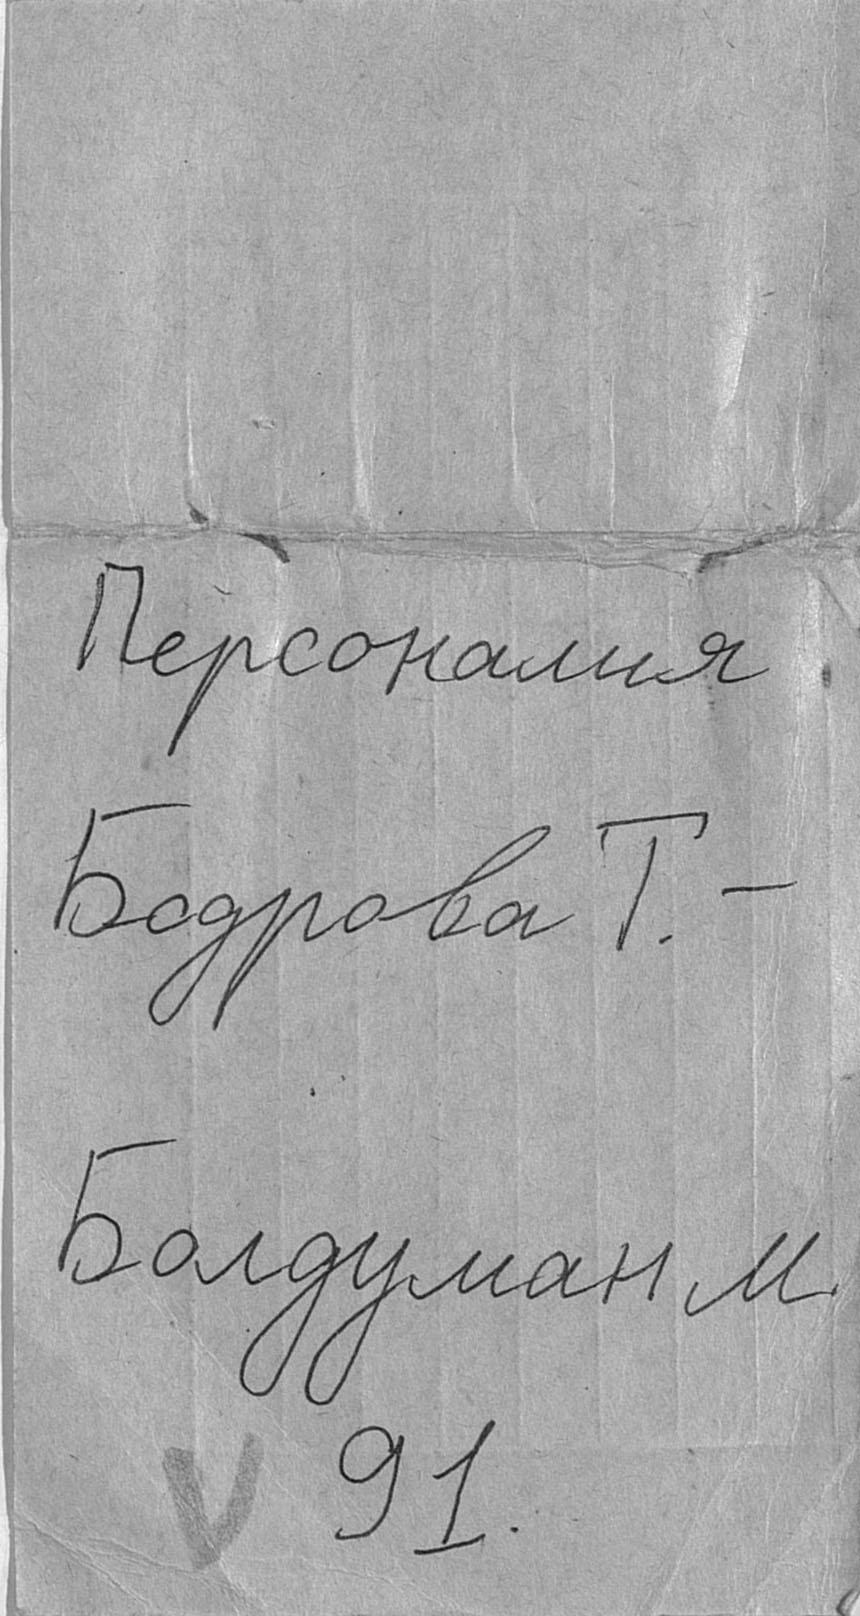 Персоналия
Бодрова Т. –
Болдуман М.
V 91.